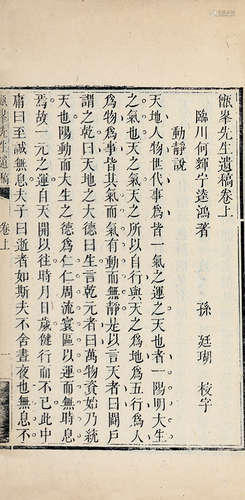 甑峯先生遺稿卷上
臨川何輝宁逵鴻著
孫 廷瑚 校字
動靜說
天地人物世代事為皆一氣之運之天也者一陽明大生
之氣也天之氣天之所以自行與天之為地為五行為人
為物為事皆其氣而氣有動而無靜是以言天者曰闢戶
謂之乾曰天地之大德曰生言乾元者曰萬物資始乃統
天也陽動而大生之德為仁仁周流寰區以運而無時息
焉故一元之運自天開以往時月日歲健行而不已此中
庸曰至誠無息夫子曰逝者如斯夫不舍晝夜也無息不
甑峯先生遺稿
卷上